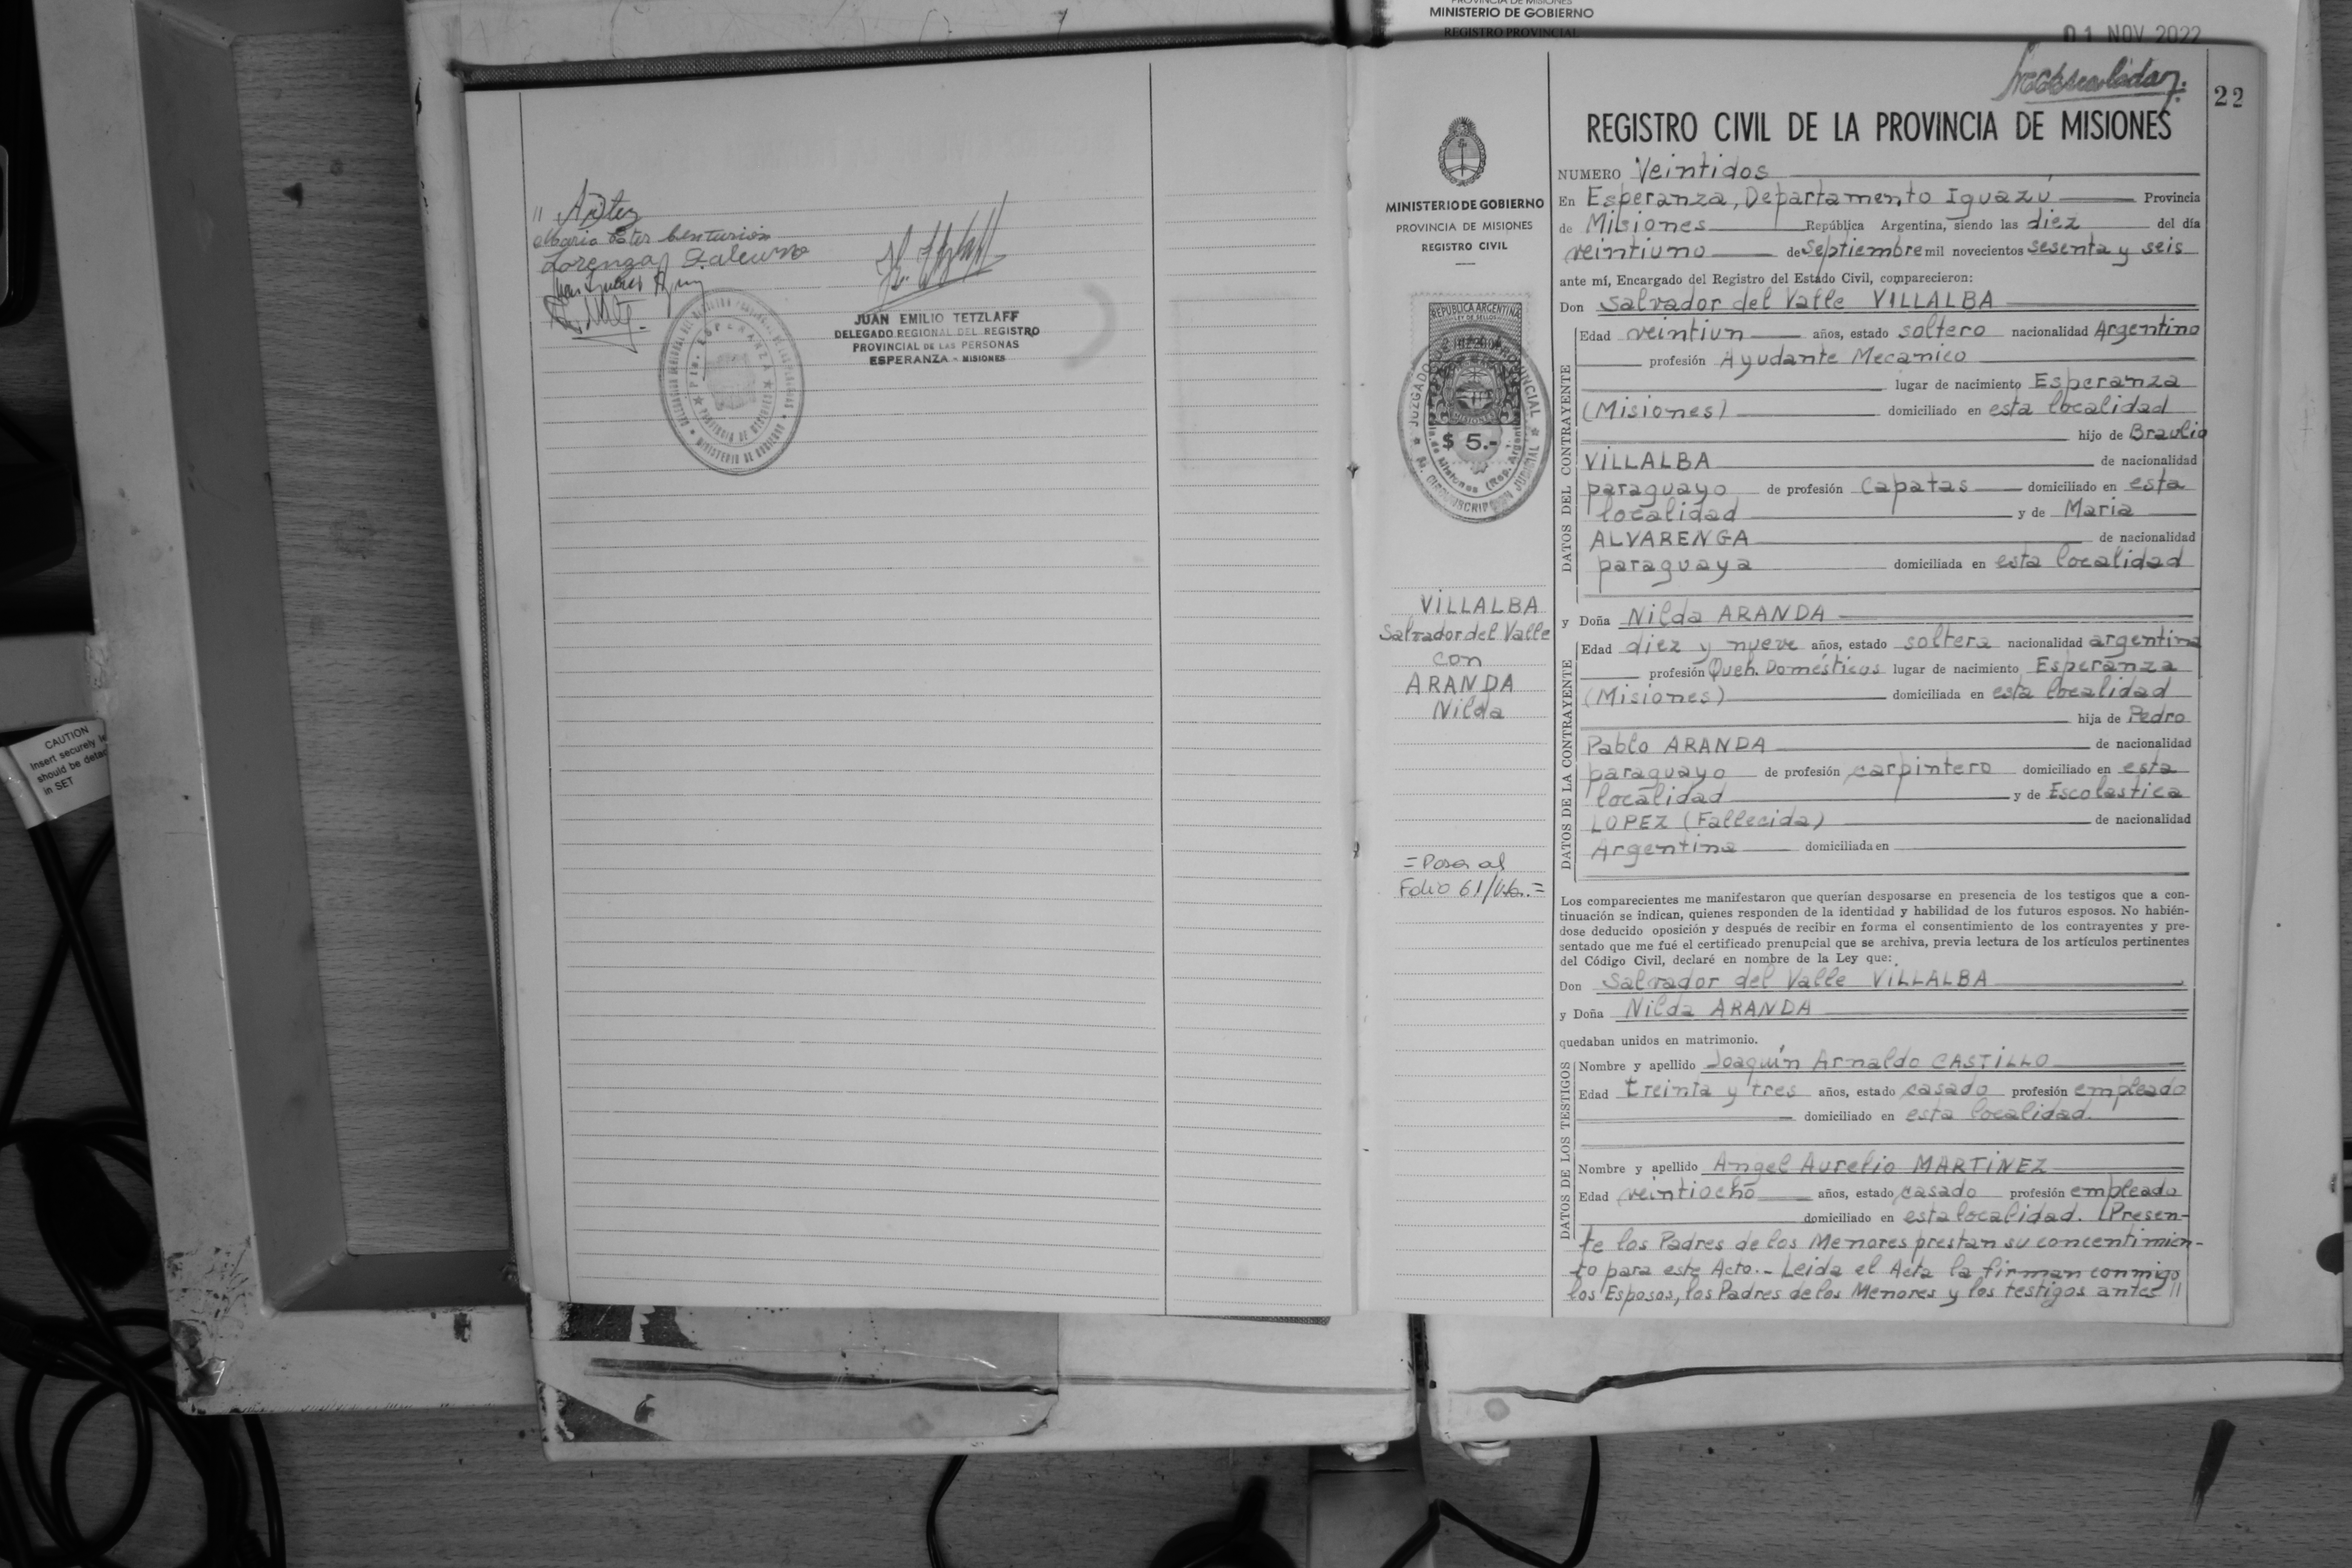 CAUTION
Insert securely
should be
in SET
Maria Ester Centurión
Lorenza
JUAN EMILIO TETZLAFF
DELEGADO REGIONAL DEL REGISTRO
PROVINCIAL DE LAS PERSONAS
ESPERANZA - MISIONES
MINISTERIO DE GOBIERNO
REGISTRO PROVINCIAL
01 NOV 2022
22
MINISTERIO DE GOBIERNO
PROVINCIA DE MISIONES
REGISTRO CIVIL
REPUBLICA ARGENTINA
LEY DE SELLOS
$ 5.-
VILLALBA
Salvador del Valle
con
ARANDA
Nilda
= Pasa al
Folio 61/Vta. =
REGISTRO CIVIL DE LA PROVINCIA DE MISIONES
NUMERO Veintidos
En Esperanza, Departamento Iguazú Provincia
de Misiones República Argentina, siendo las diez del día
veintiuno de Septiembre mil novecientos sesenta y seis
ante mí, Encargado del Registro del Estado Civil, comparecieron:
Don Salvador del Valle VILLALBA
DATOS DEL CONTRAYENTE
Edad veintiun años, estado soltero nacionalidad Argentino
profesión Ayudante Mecanico
lugar de nacimiento Esperanza
(Misiones) domiciliado en esta localidad
hijo de Braulio
VILLALBA de nacionalidad
paraguayo de profesión capatas domiciliado en esta
localidad y de Maria
ALVARENGA de nacionalidad
paraguaya domiciliada en esta localidad
y Doña Nilda ARANDA
DATOS DE LA CONTRAYENTE
Edad diez y nueve años, estado soltera nacionalidad argentina
profesión Queh. Domésticos lugar de nacimiento Esperanza
(Misiones) domiciliada en esta localidad
hija de Pedro
Pablo ARANDA de nacionalidad
paraguayo de profesión carpintero domiciliado en esta
localidad y de Escolastica
LOPEZ (Fallecida) de nacionalidad
Argentina domiciliada en
Los comparecientes me manifestaron que querían desposarse en presencia de los testigos que a con-
tinuación se indican, quienes responden de la identidad y habilidad de los futuros esposos. No habién-
dose deducido oposición y después de recibir en forma el consentimiento de los contrayentes y pre-
sentado que me fué el certificado prenupcial que se archiva, previa lectura de los artículos pertinentes
del Código Civil, declaré en nombre de la Ley que:
Don Salvador del Valle VILLALBA
y Doña Nilda ARANDA
quedaban unidos en matrimonio.
DATOS DE LOS TESTIGOS
Nombre y apellido Joaquín Arnaldo CASTILLO
Edad treinta y tres años, estado casado profesión empleado
domiciliado en esta localidad.
Nombre y apellido Angel Aurelio MARTINEZ
Edad veintiocho años, estado casado profesión empleado
domiciliado en esta localidad. Presen-
te los Padres de los Menores prestan su concentimien-
to para este Acto.- Leida el Acta la firman conmigo
los Esposos, los Padres de los Menores y los testigos antes //